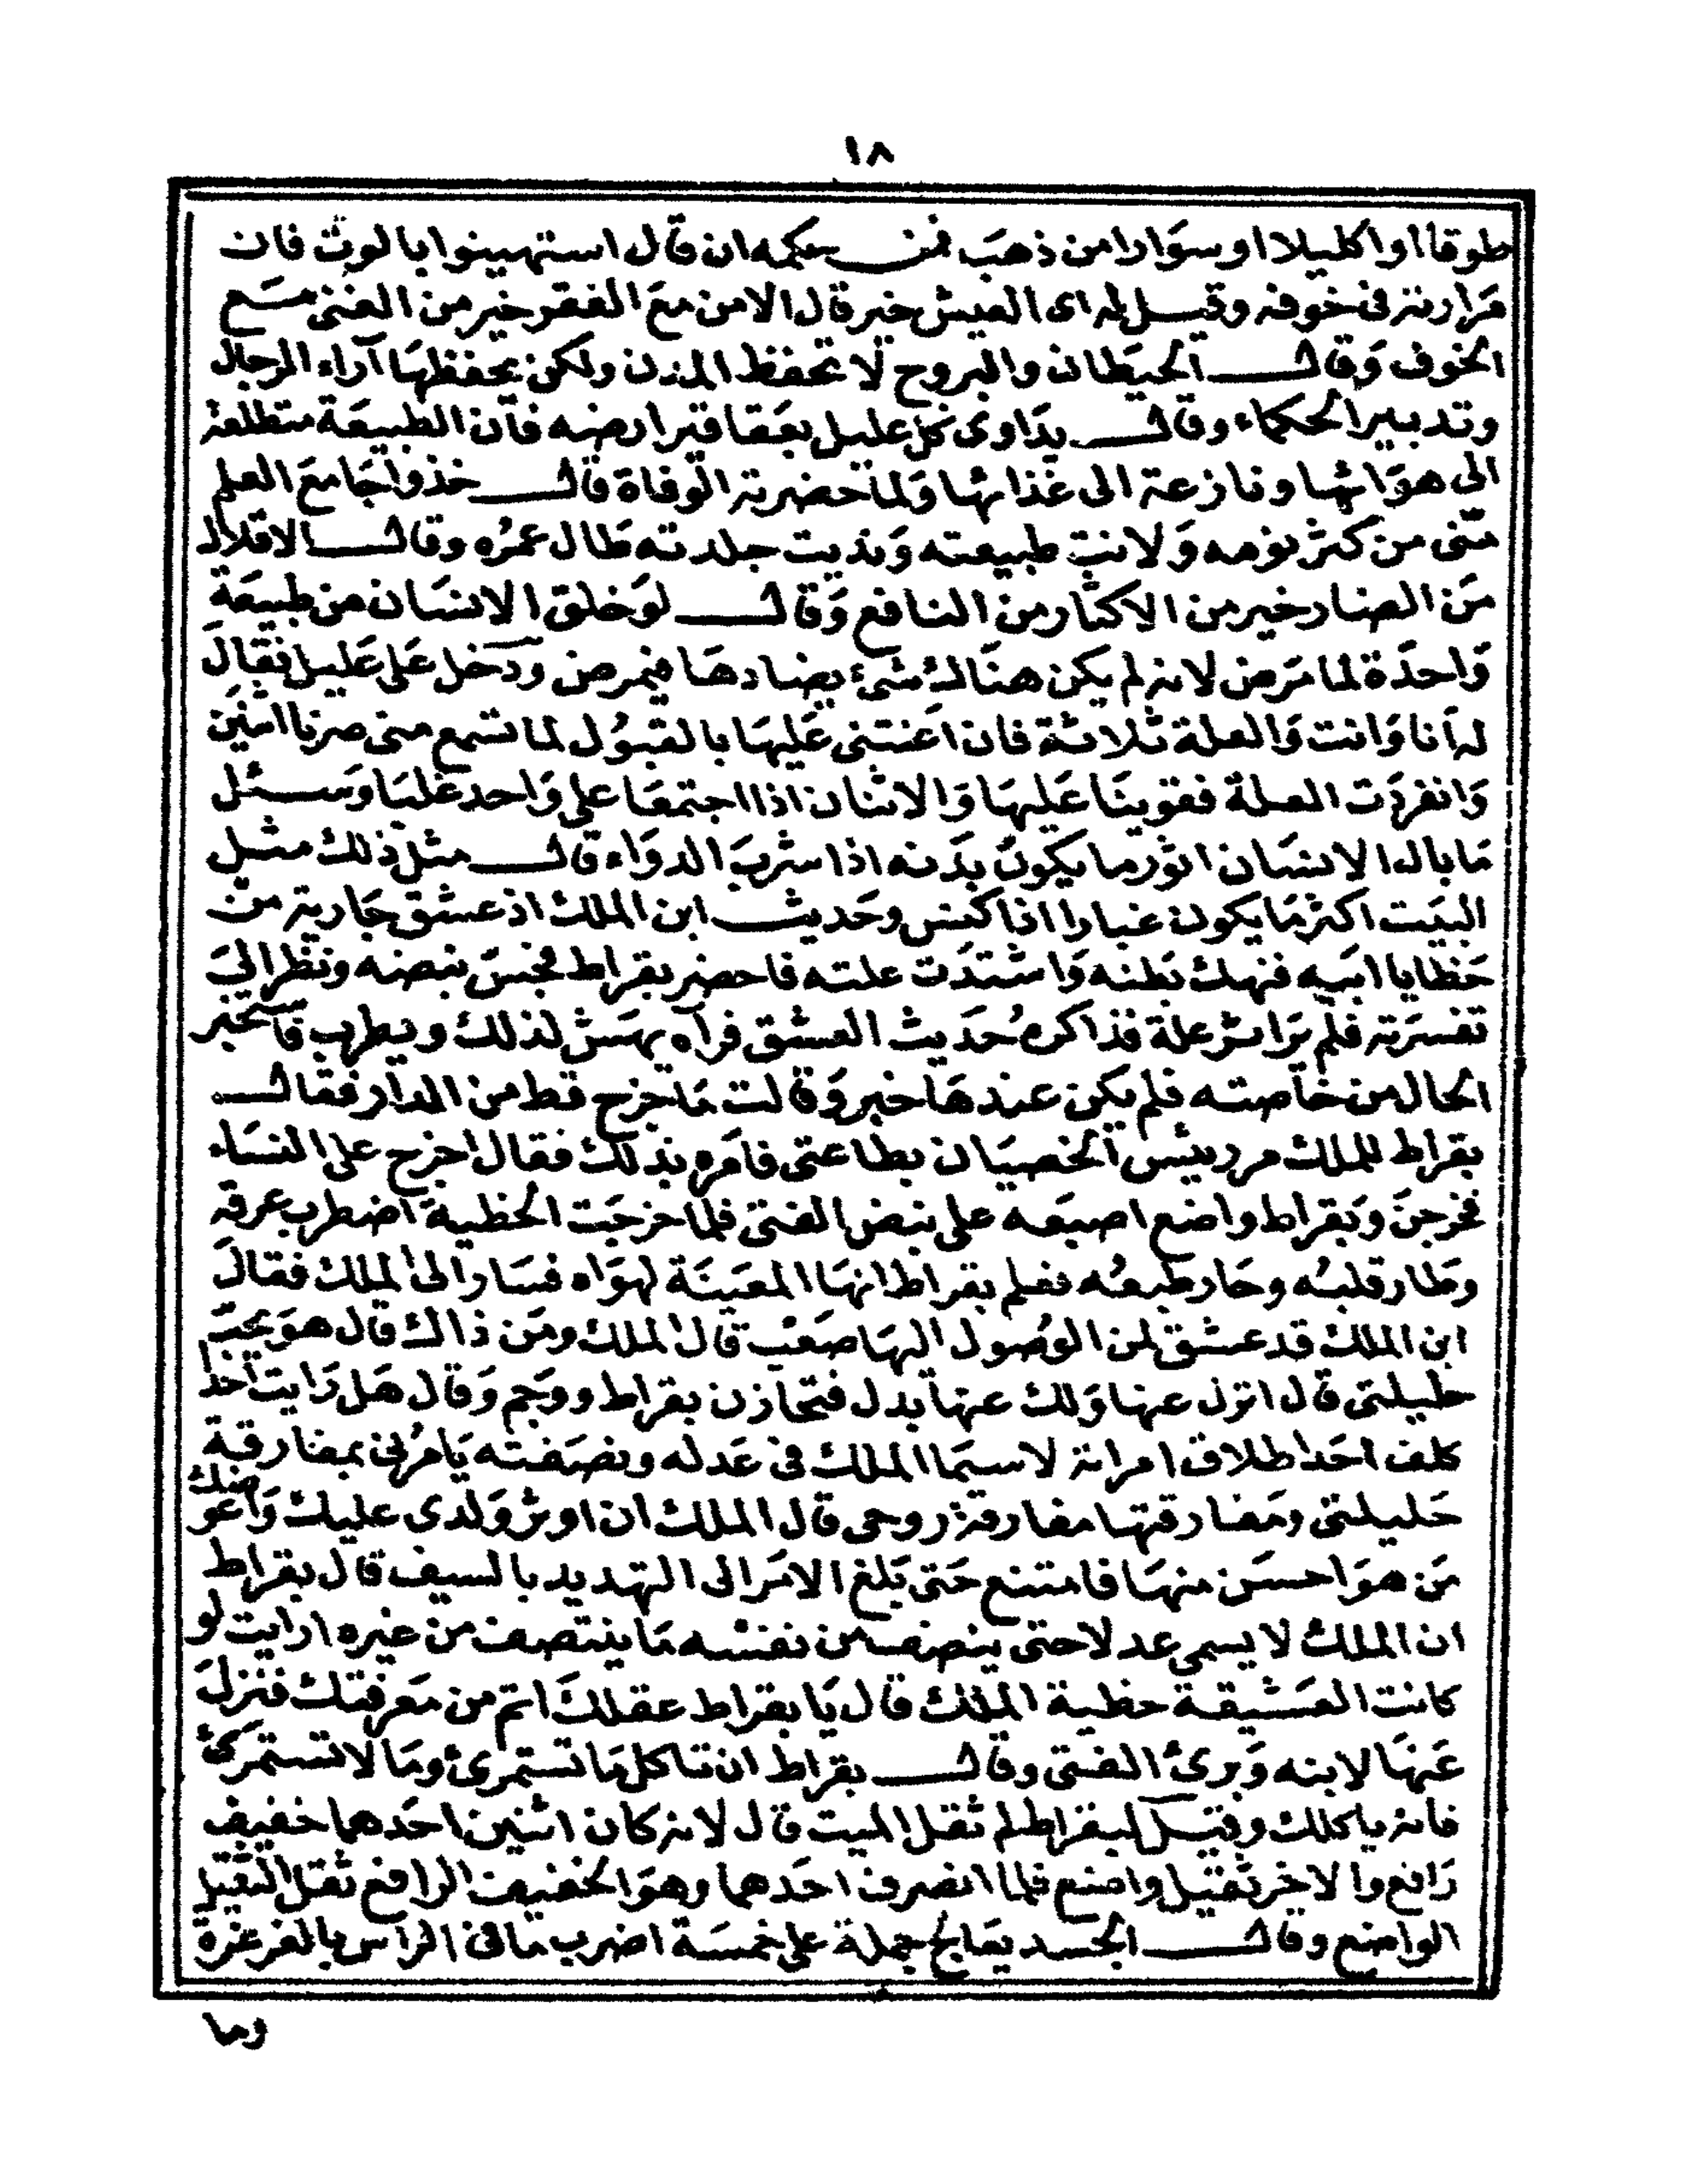 ١٨
طوقا او اكليلا او سوارا من ذهب فمن حكمه ان قال استهينوا بالموت فان
مرارته فى خوفه وقيل له اى العيش خير قال الامن مع الفقر خير من الغنى مع
الخوف وقال الحيطان والبروج لا تحفظ المدن ولكن يحفظها آراء الرجال
وتدبير الحكماء وقال يداوى كل عليل بعقاقير ارضه فان الطبيعة متطلعة
الى هوائها ونازعة الى غذائها ولما حضرته الوفاة قال خذوا جامع العلم
منى من كثر نومه ولانت طبيعته ونديت جلدته طال عمره وقال الاقلال
من الضار خير من الاكثار من النافع وقال لو خلق الانسان من طبيعة
واحدة لما مرض لانه لم يكن هناك شئ يضادها فيمرض ودخل على عليل فقال
له انا وانت والعلة ثلاثة فان اعنتنى عليها بالقبول لما تسمع منى صرنا اثنين
وانفردت العلة فقوينا عليها والاثنان اذا اجتمعا على واحد غلبا وسئل
ما بال الانسان اثور ما يكون بدنه اذا شرب الدواء قال مثل ذلك مثل
البيت اكثر ما يكون غبارا اذا كنس وحديث ابن الملك اذ عشق جارية من
حظايا ابيه فنهك بطنه واشتدت علته فاحضر بقراط فجس نبضه ونظر الى
تفسرته فلم ير اثر علة فذاكره حديث العشق فرآه يهش لذلك ويطرب فاستخبر
الحال من خاصته فلم يكن عندها خبر وقالت ما خرج قط من الدار فقال
بقراط للملك مر رييس الخصيان بطاعتى فامره بذلك فقال اخرج على النساء
فخرجن وبقراط واضع اصبعه على نبض الفتى فلما خرجت الحظية اضطرب عرقه
وطار قلبه وحار طبعه فعلم بقراط انها المعينة لهواه فسار الى الملك فقال
ابن الملك قد عشق لمن الوصول اليها صعب قال الملك ومن ذاك قال هو يحب
حليلتى قال انزل عنها ولك عنها بدل فتحازن بقراط ووجم وقال هل رايت احدا
كلف احدا طلاق امراته لا سيما الملك فى عدله ونصفته يامرنى بمفارقة
حليلتى ومفارقتها مفارقة روحى قال الملك ان اوثر ولدى عليك واعوضك
من هو احسن منها فامتنع حتى بلغ الامر الى التهديد بالسيف قال بقراط
ان الملك لا يسمى عدلا حتى ينصف من نفسه ما ينتصف من غيره ارايت لو
كانت العشيقة حظية الملك قال يا بقراط عقلك اتم من معرفتك فنزل
عنها لابنه وبرئ الفتى وقال بقراط ان تاكل ما تستمرئ وما لا تستمرئ
فانه ياكلك وقيل لبقراط لم ثقل الميت قال لانه كان اثنين احدهما خفيف
رافع والاخر ثقيل واضع فلما انصرف احدهما وهو الخفيف الرافع ثقل الثقيل
الواضع وقال الجسد يعالج جملة على خمسة اضرب ما فى الراس بالغرغرة
وما